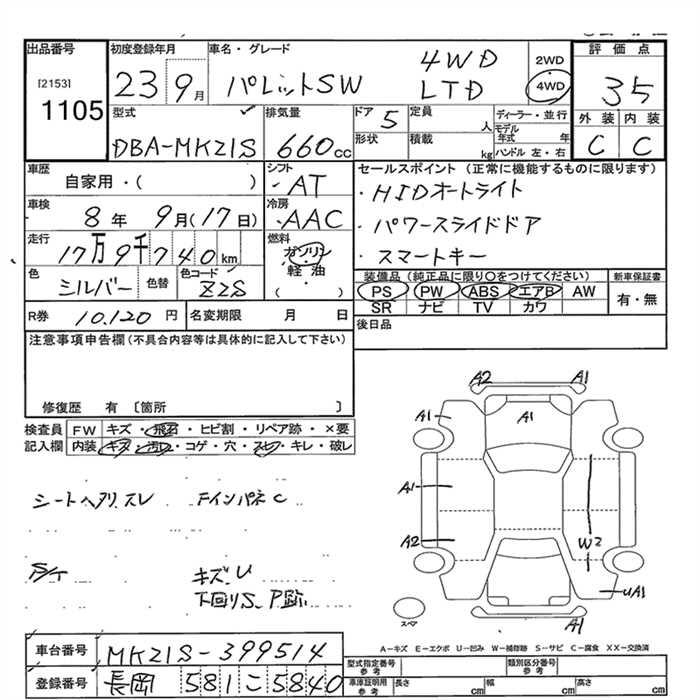 出品番号 初度登録年月 車名・グレード 評価点
[2153]
1105
23 9月 パレットSW 4WD LTD 2WD 4WD 35
型式 排気量 ドア 定員 ディーラー・並行 外装 内装
DBA-MK21S 660cc 5 人 モデル年式 年 C C
形状 積載 kg ハンドル 左・右
車歴 シフト セールスポイント (正常に機能するものに限ります)
自家用・( ) AT ・HIDオートライト
車検 冷房
8年 9月(17日) AAC ・パワースライドドア
走行 燃料
17万9千740km ガソリン ・スマートキー
色 色替 色コード 軽油 装備品(純正品に限り○をつけてください) 新車保証書
シルバー Z2S ( ・ ) PS PW ABS エアB AW 有・無
SR ナビ TV カワ
R券 10,120円 名変期限 月 日 後日品
注意事項申告欄(不具合内容等は具体的に記入して下さい)
修復歴 有 〔箇所 〕
検査員 FW キズ・飛石・ヒビ割・リペア跡・×要
記入欄 内装 キズ・汚レ・コゲ・穴・スレ・キレ・破レ
A2 A1
A1 A1
A1
A2 W2
UA1
A1
シートヘタリ、スレ FインパネC
キズ・U
下回りS、P跡
スペア
A-キズ E-エクボ U-凹み W-補修跡 S-サビ C-腐食 XX-交換済
車台番号 MK21S-399514
型式指定番号 参考 類別区分番号 参考
登録番号 長岡 581 こ 5840
車庫証明用 参考 長さ cm 幅 cm 高さ cm